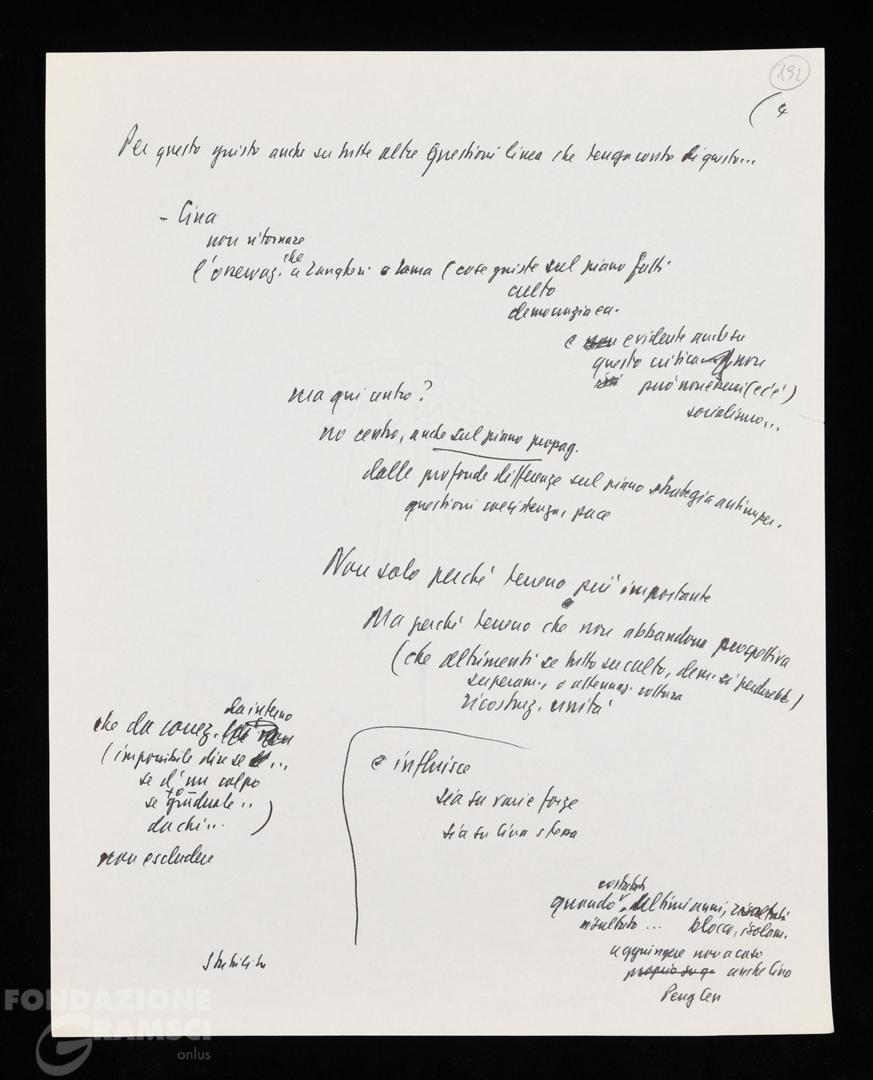 192
( 4
Per questo giusto anche su tutte altre questioni linea che tenga conto di questo...
- Cina
non ritornare
che
l'osservaz. a Zangheri o Lama (cose giuste sul piano fatti
culto
democrazia ecc.
e non evidente anche su
questo critica non
può non esserci (e c'è)
socialismo...
ma qui altro?
no centro, anche sul piano propag.
dalle profonde differenze sul piano strategia antimper.
questioni coesistenza, pace
Non solo perché terreno più importante
Ma perché terreno che non abbandona prospettiva
(che altrimenti se tutto su culto, dem. si perderebbe)
superam., o attenuaz. rottura
ricostruz. unità
da interno
che da correz.
(impossibile dire se ...
se d'un colpo
se graduale..
da chi... )
non escludere
e influisce
sia su varie forze
sia su Cina stessa
costatati
quando ultimi anni, risultati
risultato ... blocc., isolam.
aggiungere non a caso
proprio su q. anche Cina
Peng Cen
FONDAZIONE
GRAMSCI
onlus